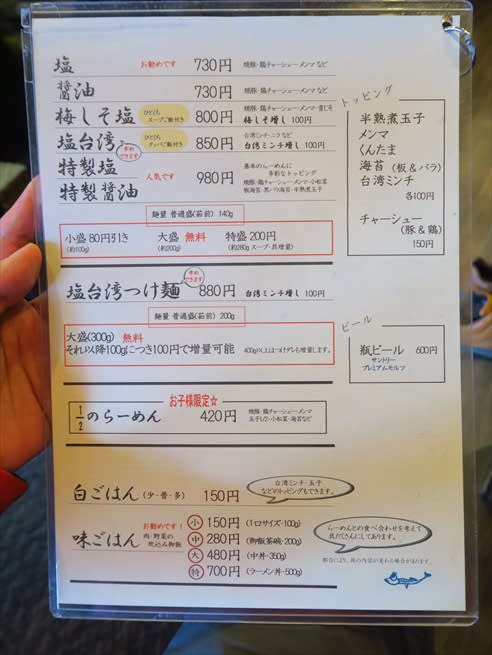 塩 お勧めです 730円 焼豚・鶏チャーシュー・メンマ など
醤油 730円 焼豚・鶏チャーシュー・メンマ など
梅しそ塩 ひとくちスープご飯付き 800円 焼豚・鶏チャーシュー・メンマ・
梅しそ増し 100円
塩台湾 辛めできます ひとくち ご飯付き 850円 台湾ミンチ・ニラ など
台湾ミンチ増し 100円
特製塩
特製醤油
人気です 980円 基本のらーめんに
多彩なトッピング
焼豚・鶏チャーシュー・メンマ・小松菜
板海苔・黒バラ海苔・半熟煮玉子
麺量 普通盛(茹前) 140g
小盛 80円引き 大盛 無料 特盛 200円
(約100g) (約200g) (約280g スープ・具増量)
塩台湾つけ麺 辛めできます 880円 台湾ミンチ増し 100円
麺量 普通盛(茹前) 200g
大盛(300g) 無料
それ以降100gにつき100円で増量可能 400g以上はつけダレも増量します。
お子様限定☆
1/2のらーめん 420円 焼豚・鶏チャーシュー・メンマ
玉子1/2・小松菜・海苔など
白ごはん (少・普・多) 150円
台湾ミンチ・玉子
などのトッピングもできます。
味ごはん お勧めです!
肉・野菜の
炊込み御飯
小 150円 (1口サイズ・100g)
中 280円 (御飯茶碗・200g)
大 480円 (中丼・350g)
特 700円 (ラーメン丼・500g)
らーめんとの食べ合わせを考えて
具だくさんにしてあります。
都合により、具の内容が変わる場合があります。
トッピング
半熟煮玉子
メンマ
くんたま
海苔 (板&バラ)
台湾ミンチ
各100円
チャーシュー
(豚&鶏)
150円
ビール
瓶ビール 600円
サントリー
プレミアムモルツ